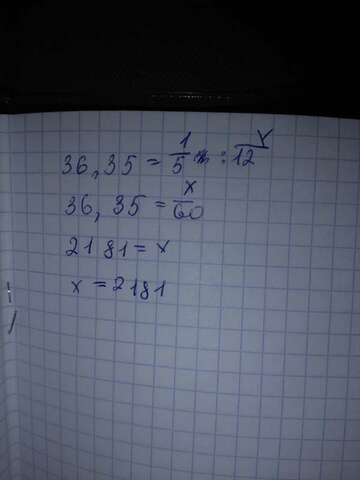 36,35 = 1/5 : x/12
36, 35 = x/60
2181 = x
x = 2181